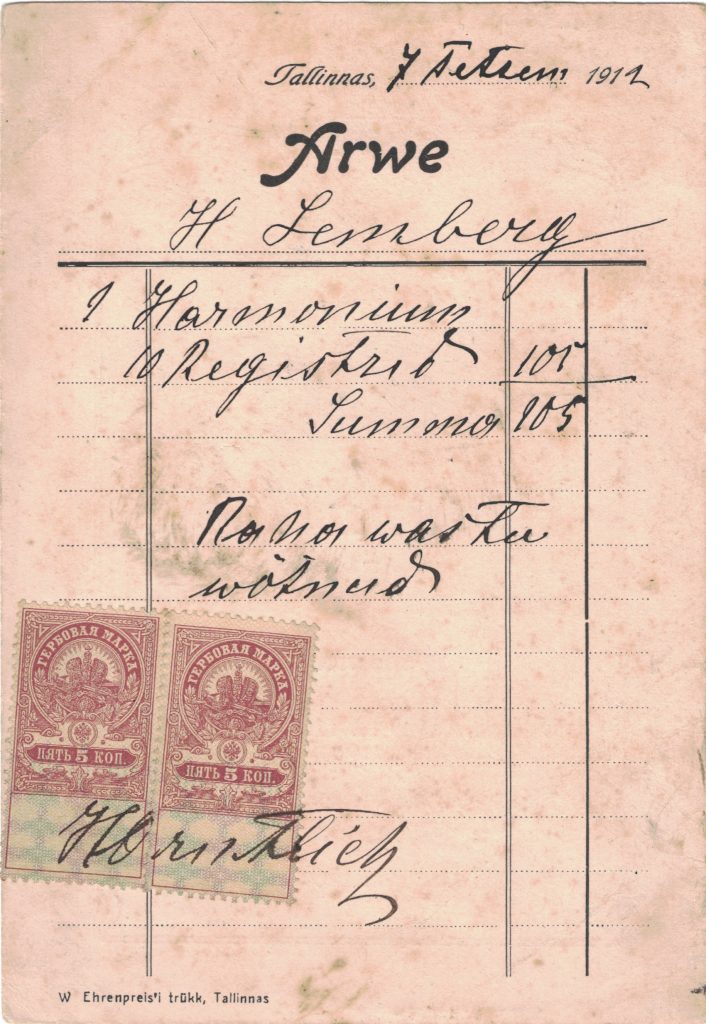 Tallinnas, 7 Detsem 1912
Arwe
H Lemberg
1 Harmonium
10 Registrid 105
Summa 105
Raha wastu
wõtnud
ГЕРБОВАЯ МАРКА ГЕРБОВАЯ МАРКА
ПЯТЬ 5 КОП. ПЯТЬ 5 КОП.
W Ehrenpreis'i trükk, Tallinnas